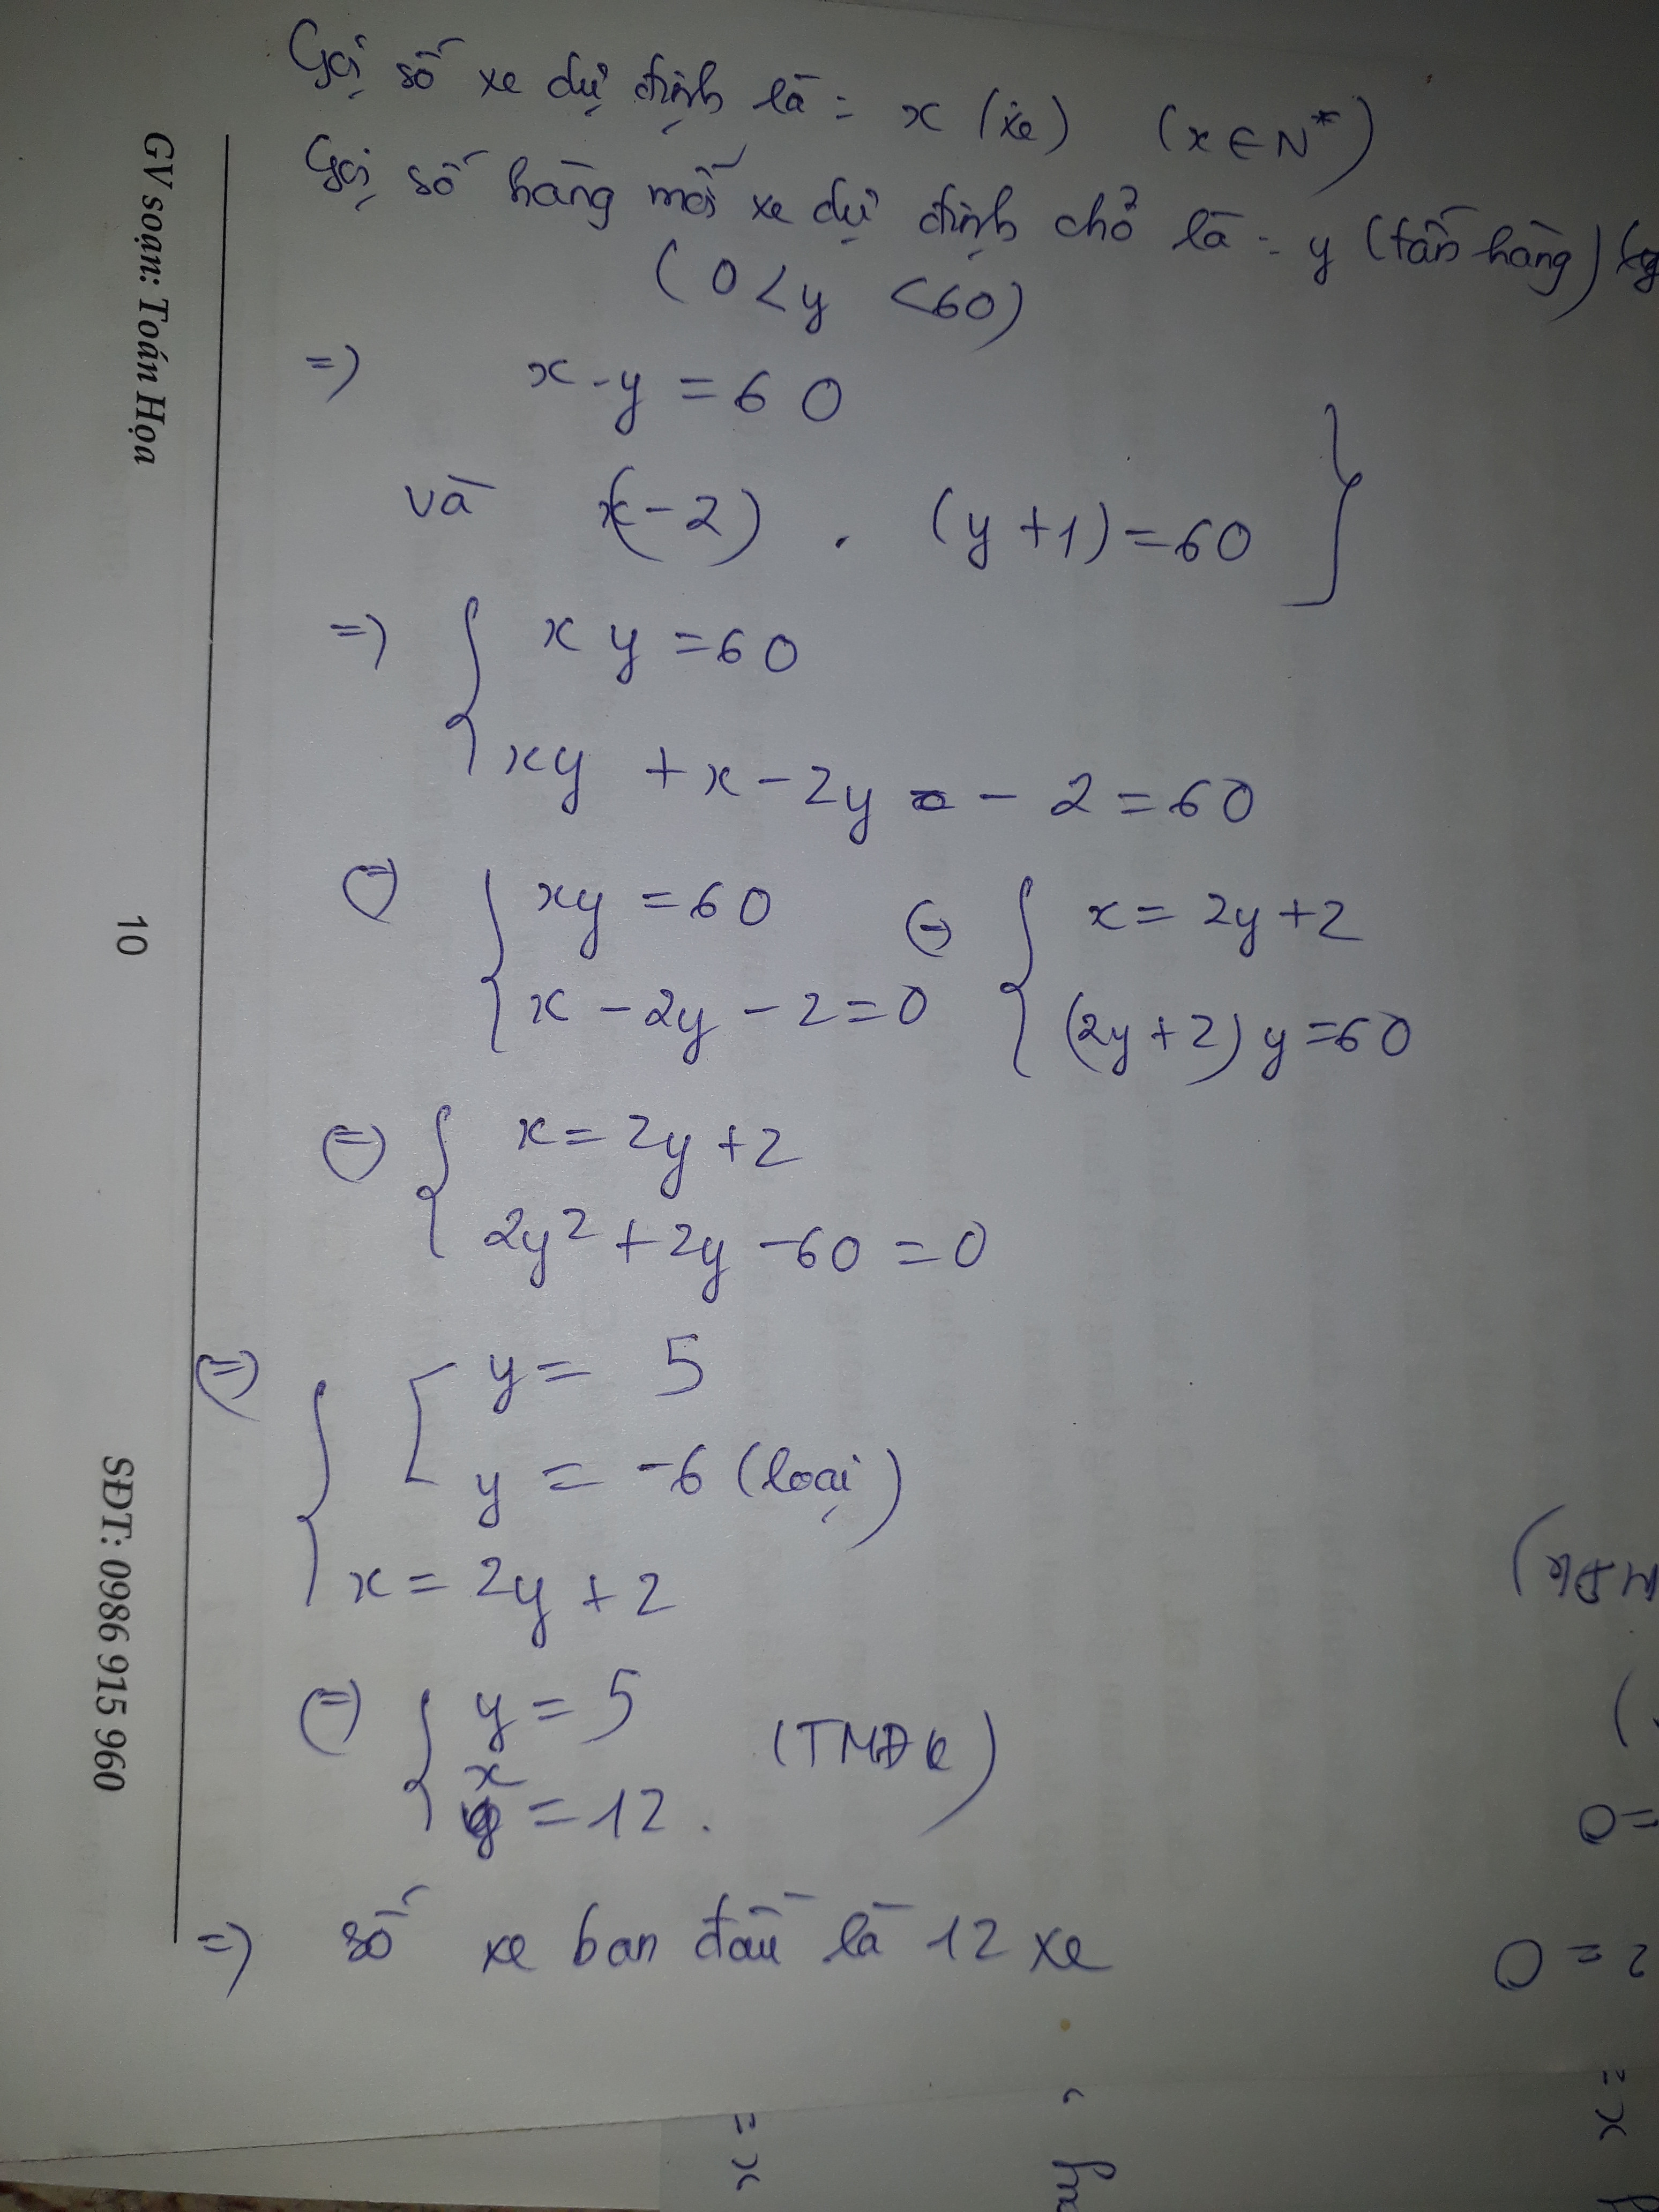 Gọi số xe dự định là: x (xe) (x ∈ N*)
Gọi số hàng mỗi xe dự định chở là: y (tấn hàng)
(0 < y < 60)
=> x - y = 60
và (x - 2) . (y + 1) = 60 }
=> { xy = 60
xy + x - 2y - 2 = 60
(=) { xy = 60 (=) { x = 2y + 2
x - 2y - 2 = 0 (2y + 2) y = 60
(=) { x = 2y + 2
2y² + 2y - 60 = 0
(=) { [ y = 5
y = -6 (loại)
x = 2y + 2
(=) { y = 5
x = 12. (TMĐK)
=> số xe ban đầu là 12 xe
GV soạn: Toán Họa
10
SĐT: 0986 915 960
x =
x =